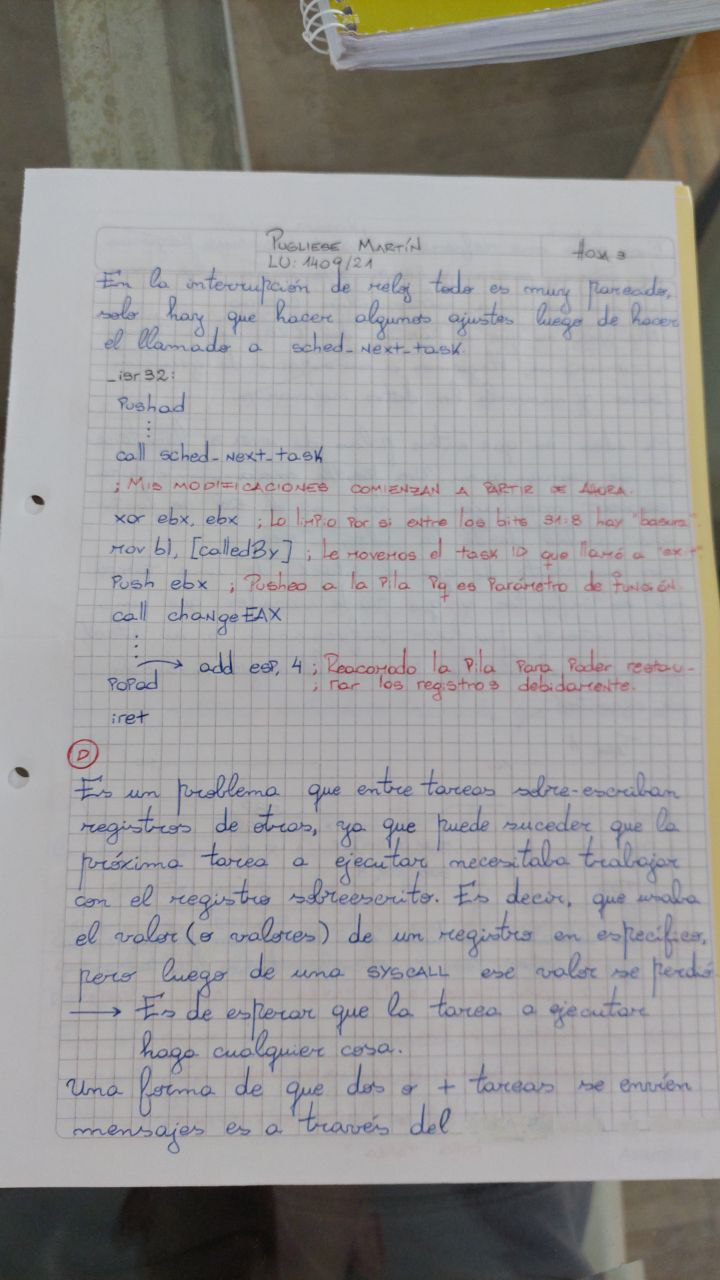 PUGLIESE MARTÍN
LU: 1409/21
Hoja 3
En la interrupción de reloj todo es muy pareado,
solo hay que hacer algunos ajustes luego de hacer
el llamado a sched_next_task.
_isr32:
Pushad
⋮
call sched_next_task
; MIS MODIFICACIONES COMIENZAN A PARTIR DE AHORA.
xor ebx, ebx ; Lo limpio por si entre los bits 31:8 hay "basura".
mov bl, [calledBy] ; Le movemos el task ID que llamó a "exit"
Push ebx ; Pusheo a la pila Pq es Parámetro de función.
call changeEAX
⋮
→ add esp, 4 ; Reacomodo la Pila Para Poder restau-
POPad ; rar los registros debidamente.
iret
D
Es un problema que entre tareas sobre-escriban
registros de otras, ya que puede suceder que la
próxima tarea a ejecutar necesitaba trabajar
con el registro sobreescrito. Es decir, que usaba
el valor (o valores) de un registro en específico,
pero luego de una SYSCALL ese valor se perdió
→ Es de esperar que la tarea a ejecutar
haga cualquier cosa.
Una forma de que dos o + tareas se envíen
mensajes es a través del